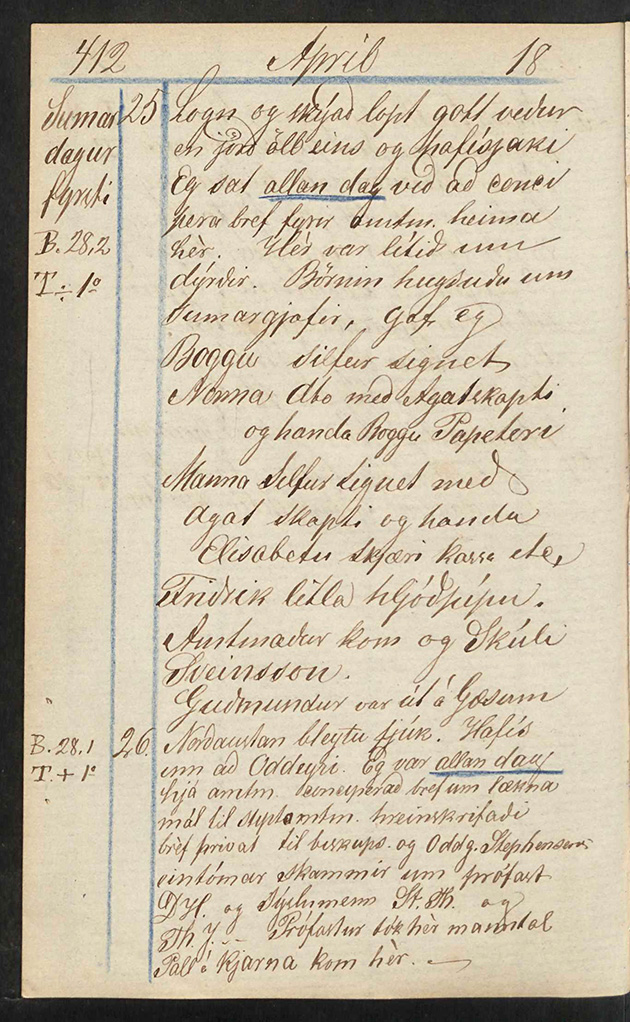 412 Apríl 18
Sumar 25 Logn og skýad lopt gott vedur
dagur en jörd öll eins og hafísjaki
fyrsti Eg sat allan dag vid ad conci
pera bref fyrir amtm. heima
B. 28,2 hèr. Hér var lítið um
T ÷ 1° dýrðir. Börnin hugsudu um
Sumargjafir, gaf eg
Boggu silfur signet
Nonna dto med Agatskapti
og handa Boggu Papeteri
Manna Silfur signet með
Agat skapti og handa
Elisabetu skjæri kassa etc,
Fridrik litla hljóðpípu.
Amtmadur kom og Skúli
Sveinsson.
Gudmundur var út á Gæsum
B. 28,1 26. Nordaustan bleytu fjúk. Hafís
T. + 1° inn ad Oddeyri. Eg var allan dag
hjá amtm. conciperad bref um lækna
mál til styptamtm. hreinskrifadi
brèf privat til biskups. og Oddg. Stephensens
eintómar skammir um prófast
D.H. og Sýslumenn St. Th. og
Th. J. -- Prófastur tók hèr manntal
Páll á Kjarna kom hèr. -